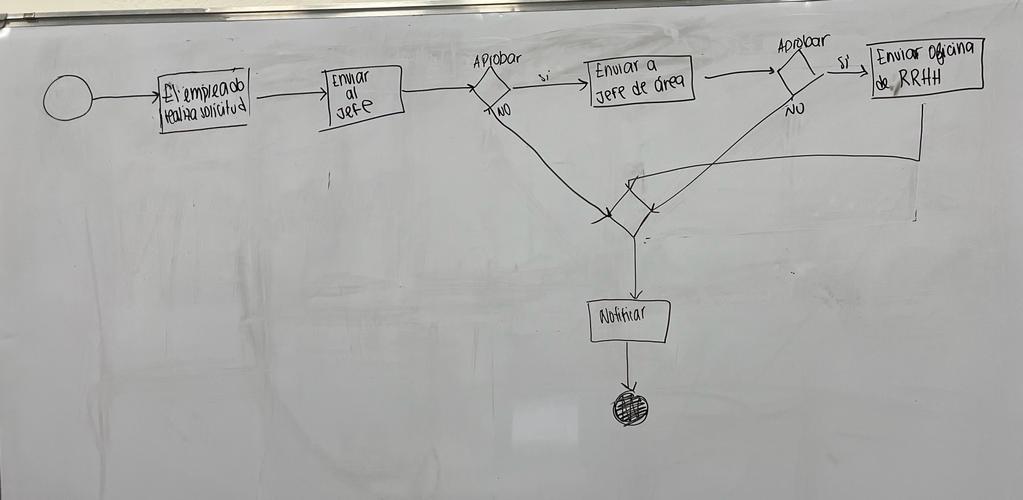 El empleado
realiza solicitud
Enviar
al
Jefe
Aprobar
si
NO
Enviar a
Jefe de área
Aprobar
si
NO
Enviar oficina
de RRHH
Notificar